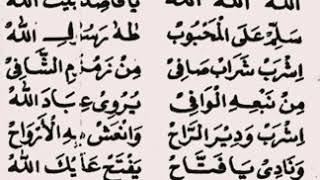 الله الله الله يَا قَاصِد بَيْت الله
سَلِّمْ عَلَى الْمَحْبُوبْ طٰهٰ رَسُولِ اللهْ
اِشْرَبْ شَرَابْ صَافِي مِنْ زَمْزَمِ الشَّافِي
مِنْ نَبْعِهِ الْوَافِي يُرْوِي عِبَادَ اللهْ
اِشْرَبْ وَدِيرَ الرَّاحْ وَانْعَشْ بِهِ الْأَرْوَاحْ
وَنَادِي يَا فَتَّاحْ يَفْتَحْ عَلَيْكَ اللهْ